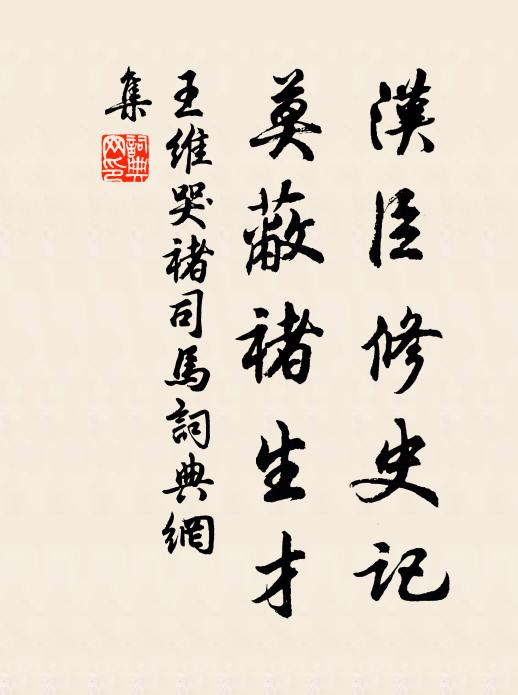 漢臣修史記
莫蔽褚生才
王維哭褚司馬詞典網
集
詞典
网印